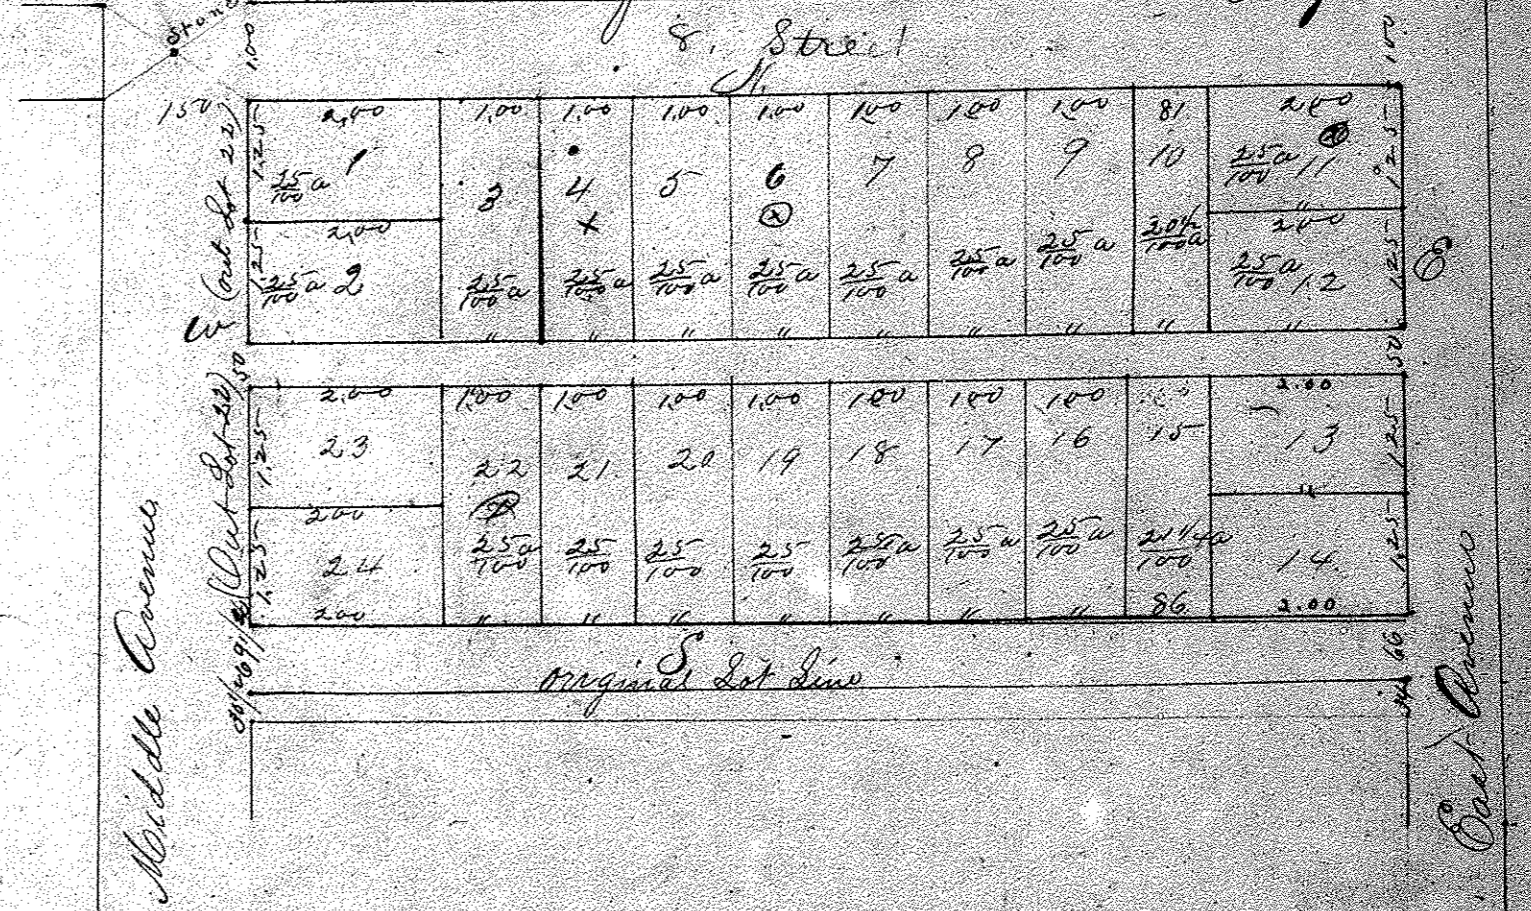 Stone
8. Street
N.
1.00
1.00
150
2,00 1,00 1.00 1.00 1.00 1.00 1.00 1.00 81 2.00
1.25 1 3 4 5 6 7 8 9 10 11 1.25
25/100 a 25/100 a
2,00 2.00
1.25 25/100 a 2 25/100 a 25/100 a 25/100 a 25/100 a 25/100 a 25/100 a 25/100 a 25/100 a 12 1.25
" " " " " " " " "
(out Lot 22)
W
E
50 50
2.00 1.00 1.00 1.00 1.00 1.00 1.00 1.00 2.00
1.25 23 22 21 20 19 18 17 16 15 13 1.25
200 "
1.25 24 25/100 a 25/100 25/100 25/100 25/100 a 25/100 a 25/100 a 21 1/4 a/100 14 1.25
200 " " " " " " " 86 2.00
(Out Lot 22)
S
66
original Lot Line
Middle Avenue
East Avenue